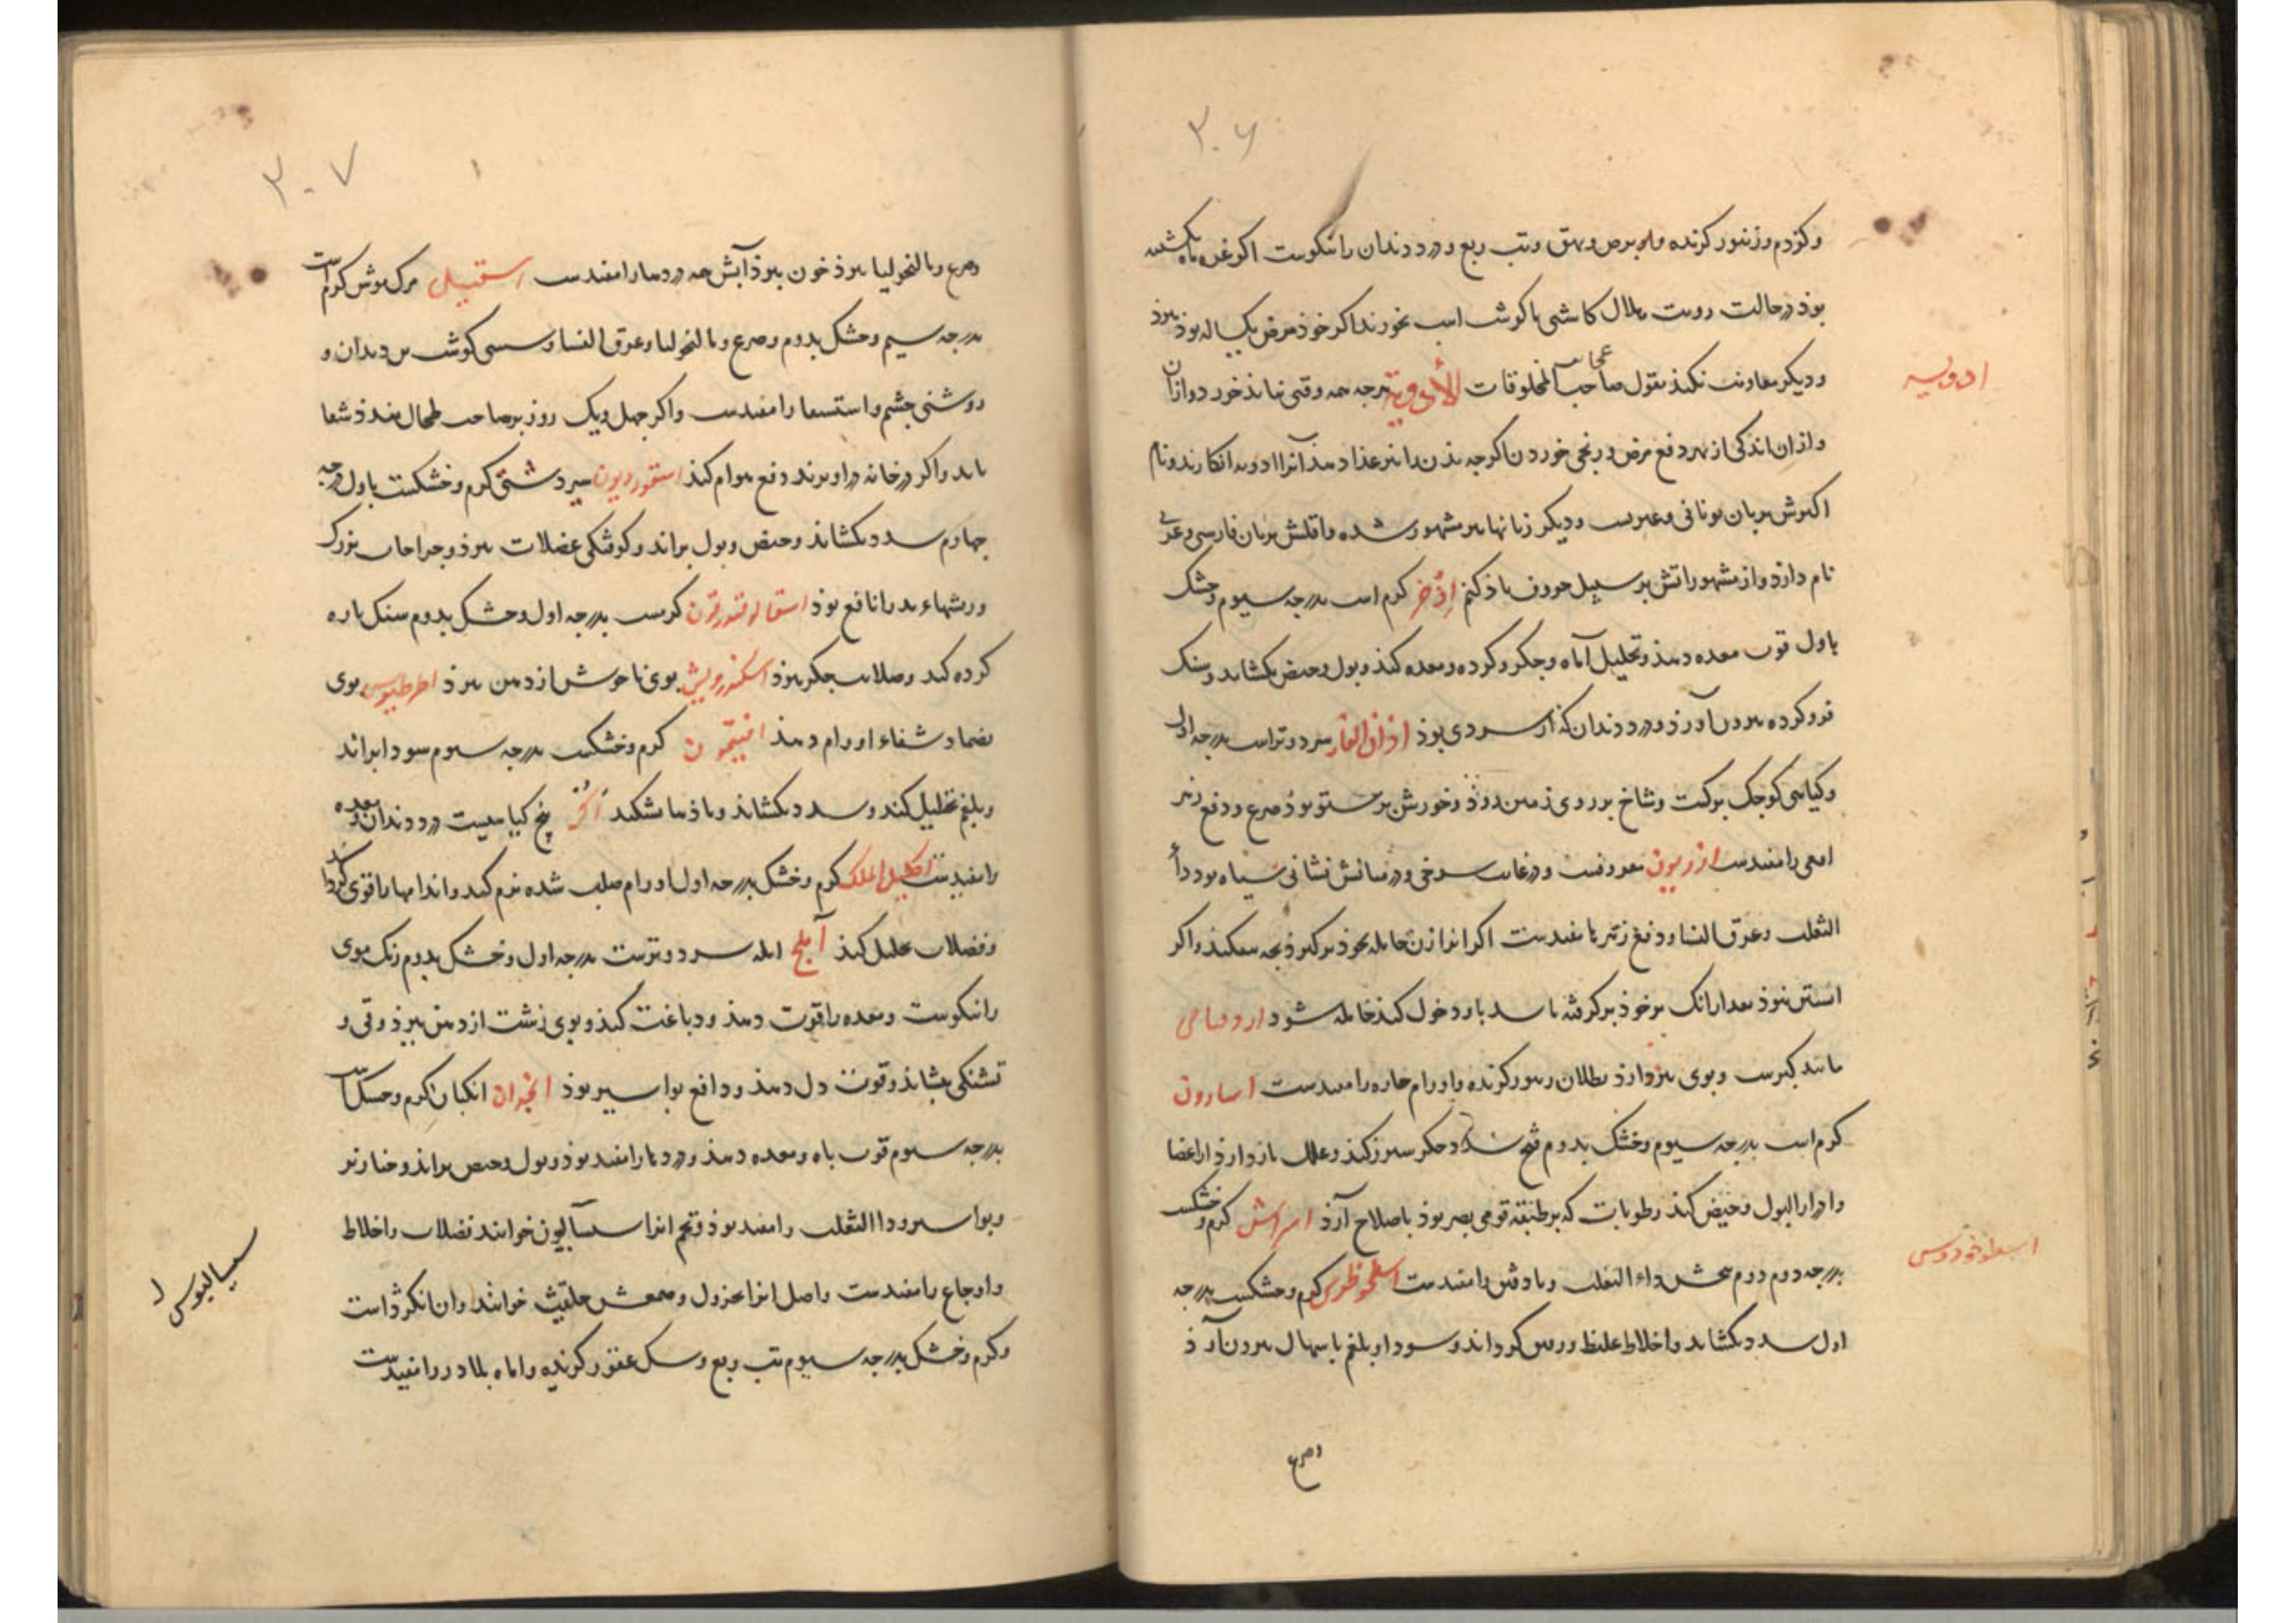 ۳۰۶
وکزدم و زنبور کزنده و برص و بهق و تب ربع و درد دندان را نیکوست اکر
بوذ در حالت رویت هلال کاشنی با کوشت اسب بخورند اکر خوذ مرض یکساله بوذ ببرذ
و دیکر معاونت نکند بقول صاحب عجایب المخلوقات الأدویة هرچه همه وقتی نباید خورد و ازان
ادویه
و ازان اندکی از بهر دفع مرض و رنجی خوردن اکرچه بدن را نیز غذا دهد آنرا ادویه انکارند و نام
اکثرش بزبان یونانی و عبریست و دیکر زبانها نیز مشهور شده و اقلش بزبان فارسی و عربی
نام دارذ و از مشهوراتش بر سبیل حروف یاذ کنم إذخر کرم است بدرجه سیوم و خشک
باول قوت معده دهد و تحلیل آماه و جکر و کرده و معده کند و بول و حیض بکشاید و سنک
فرو کرده بیرون آورذ و درد دندان که از سردی بوذ اذان الفار سرد و تر است بدرجه اول
و کیاهی کوچک برکست و شاخ بر روی زمین دوذ و خورش پرستو بوذ صرع و دفع زهر
افعی را مفیدست اذریون معروفست و در غایت سرخی و در میانش نشانی سیاه بود داء
الثعلب و عرق النسا و دفع زهر را مفیدست اکر انرا زن حامله بخوذ برکیرذ بچه بیفکند و اکر
استن نبوذ بعد ازانک بر خوذ برکرفته باشد با او دخول کند حامله شود اردقیاحی
مانند کبرست و بوی نیز دارذ بطلان زنبور کزنده و اورام حاره را مفیدست اسارون
کرم است بدرجه سیوم و خشک بدوم فتح سدد جکر سپرز کند و علل باز دارذ از اعضا
و ادرار البول و حیض کند رطوبات که بر طبقه قومی بصر بوذ باصلاح آرذ اسراش کرم و خشکست
بدرجه دوم داء الثعلب و بادفتق را مفیدست اسطوخودوس کرم و خشکست بدرجه
اسطوخودوس
اول سدد بکشاید و اخلاط غلیظ و رقیق کرداند و سودا و بلغم باسهال بیرون آرذ
وصرع
۳۰۷
وصرع و مالنخولیا ببرذ خون ببرذ آبش همه دردها را مفیدست اسقیل مرک موش کرمست
بدرجه سیم و خشک بدوم و صرع و مالنخولیا و عرق النسا و سستی کوشت بن دندان و
روشنی چشم و استسقا را مفیدست و اکر چهل و یک روز بر صاحب طحال بندند شفا
یابد و اکر در خانه در اویزند دفع هوام کند اسقوردیون سیر دشتی کرم و خشکست باول درجه
چهارم سدد بکشاند و حیض و بول براند و کوفتکی عضلات ببرذ و جراحات بزرک
و ریشهاء بد را نافع بوذ اسقالوقندرقون کرمست بدرجه اول و خشک بدوم سنک پاره
کرده کند و صلابت جکر ببرذ بوی ناخوش از دهن ببرذ بوی
بضماد شفاء اورام دهد افیتمون کرم و خشکست بدرجه سیوم سودا براند
و بلغم تحلیل کند و سدد بکشاند و باذها بشکند بیخ کیاهیست درد دندان و معده
را مفیدست اکلیل الملک کرم و خشک بدرجه اول اورام صلب شده نرم کند و اندامها را قوی کرداند
و فضلات تحلیل کند آملج امله سرد و ترست بدرجه اول و خشک بدوم رنک موی
را نیکوست و معده را قوت دهد و دباغت کند و بوی زشت از دهن ببرذ و قی و
تشنکی بنشاند و قوت دل دهد و دافع بواسیر بوذ انجدان انکبان کرم و خشکست
بدرجه سیوم قوت باه و معده دهد و دردها را مفید بوذ و بول و حیض براند و خنازیر
و بواسیر و داء الثعلب را مفید بوذ و تخم انرا خوانند فضلات و اخلاط
و اوجاع را مفیدست و اصل انرا محزول و صمغش حلتیت خوانند و ان انکزد است
سیسالیوس
و کرم و خشک بدرجه سیوم تب ربع و سک عقور کزنده و اماه بلادر را مفیدست